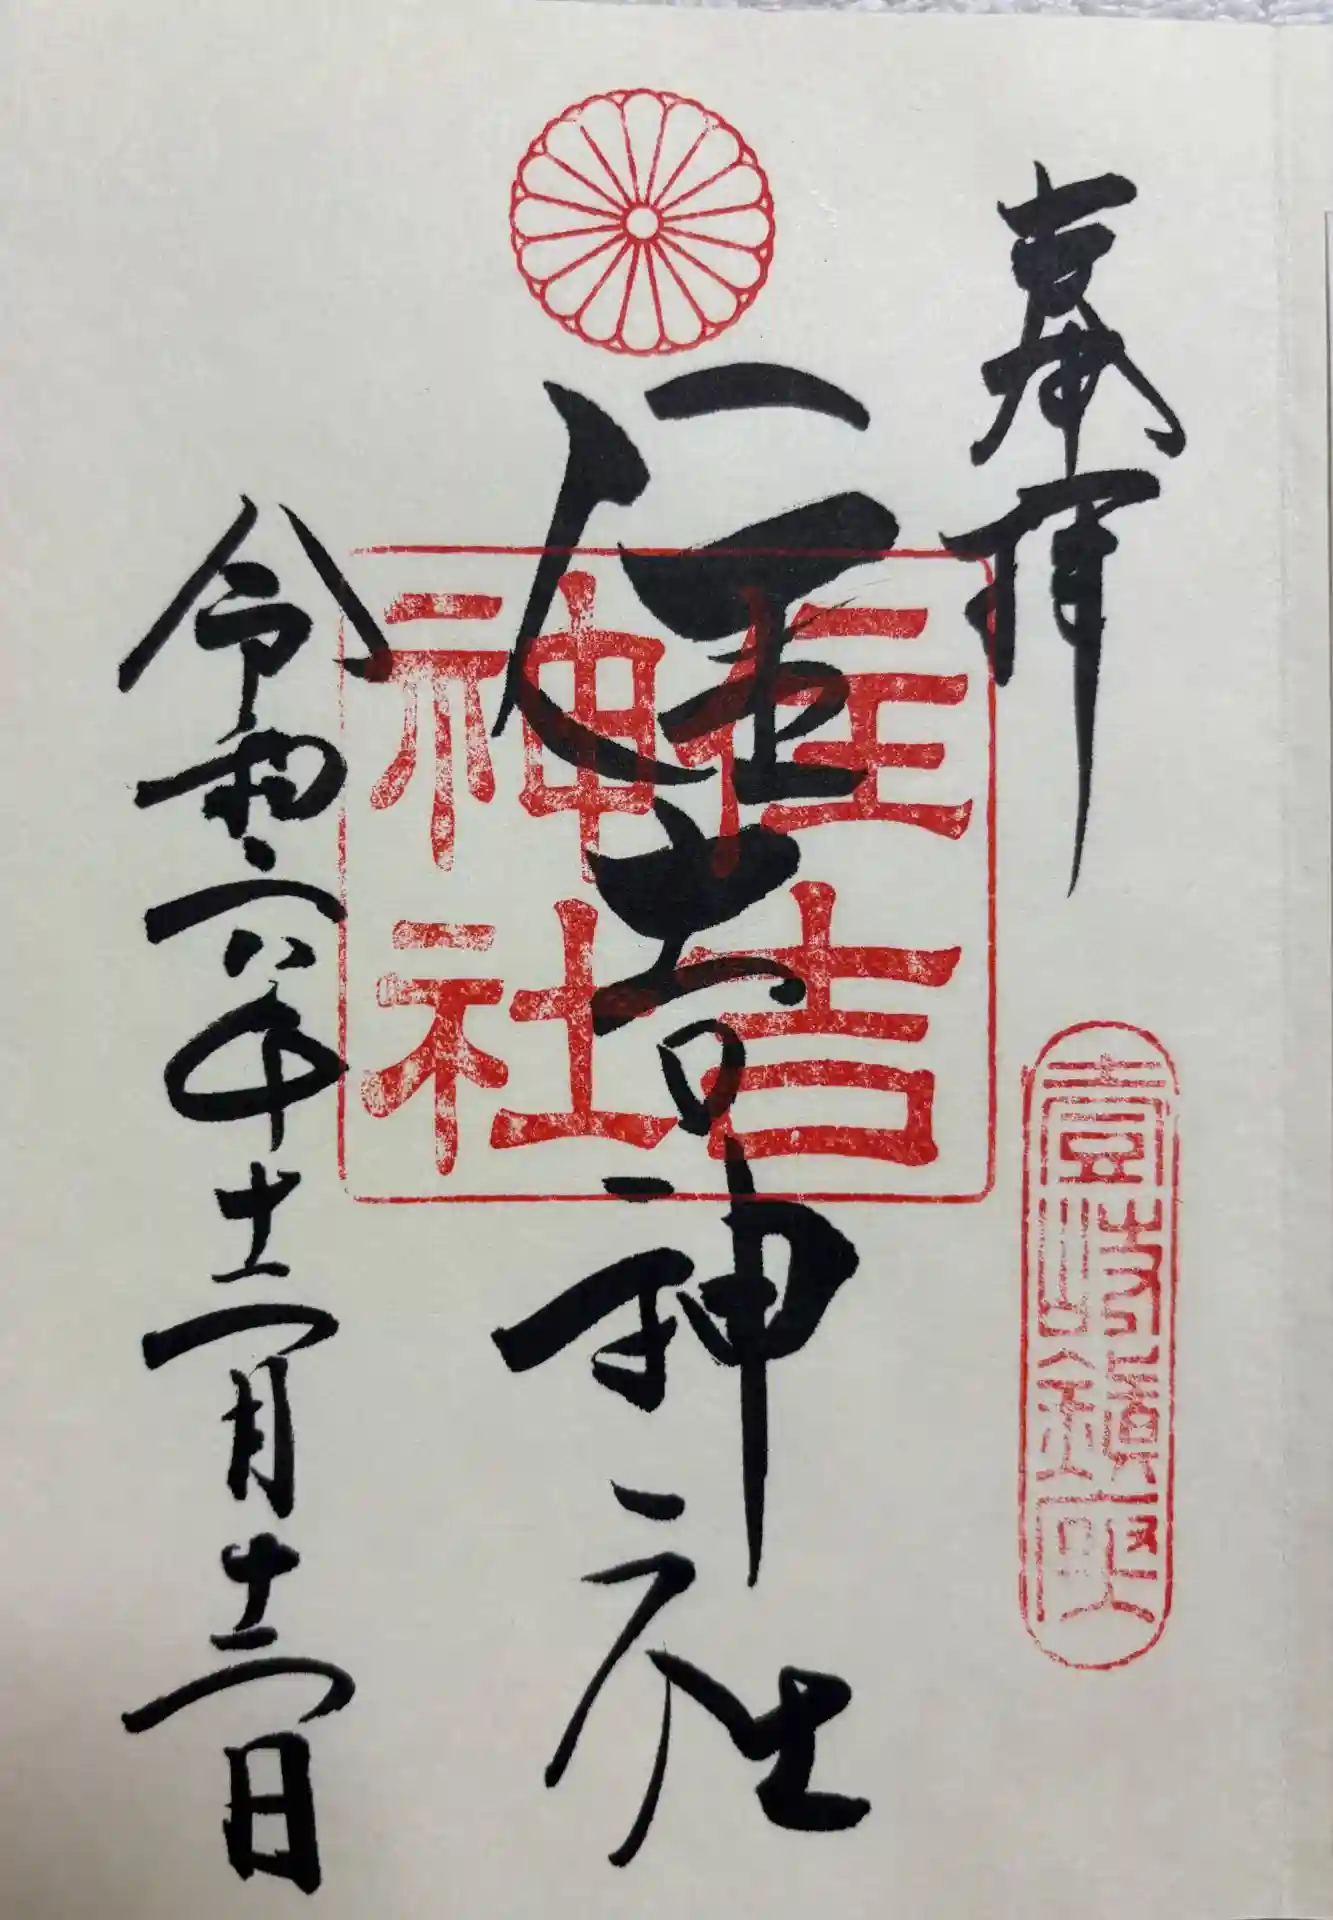 奉拝
壹岐
住吉神社
住吉
神社
令和六年十二月十二日